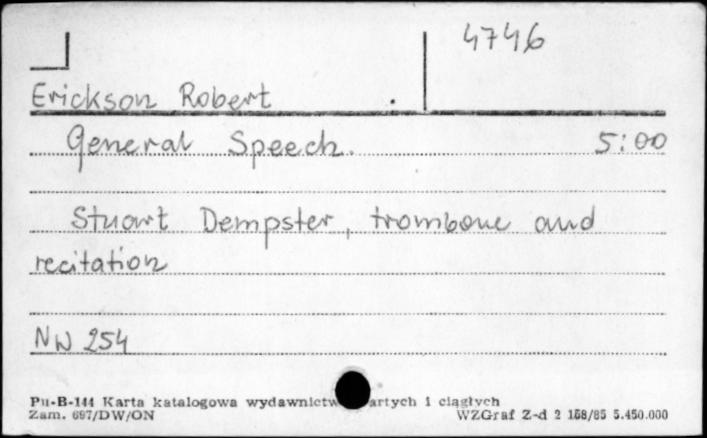 4746
Erickson Robert
General Speech. 5:00
Stuart Dempster, trombone and
recitation
NW 254
Pu-B-144 Karta katalogowa wydawnictw artych i ciągłych
Zam. 697/DW/ON WZGraf Z-d 2 158/85 5.450.000